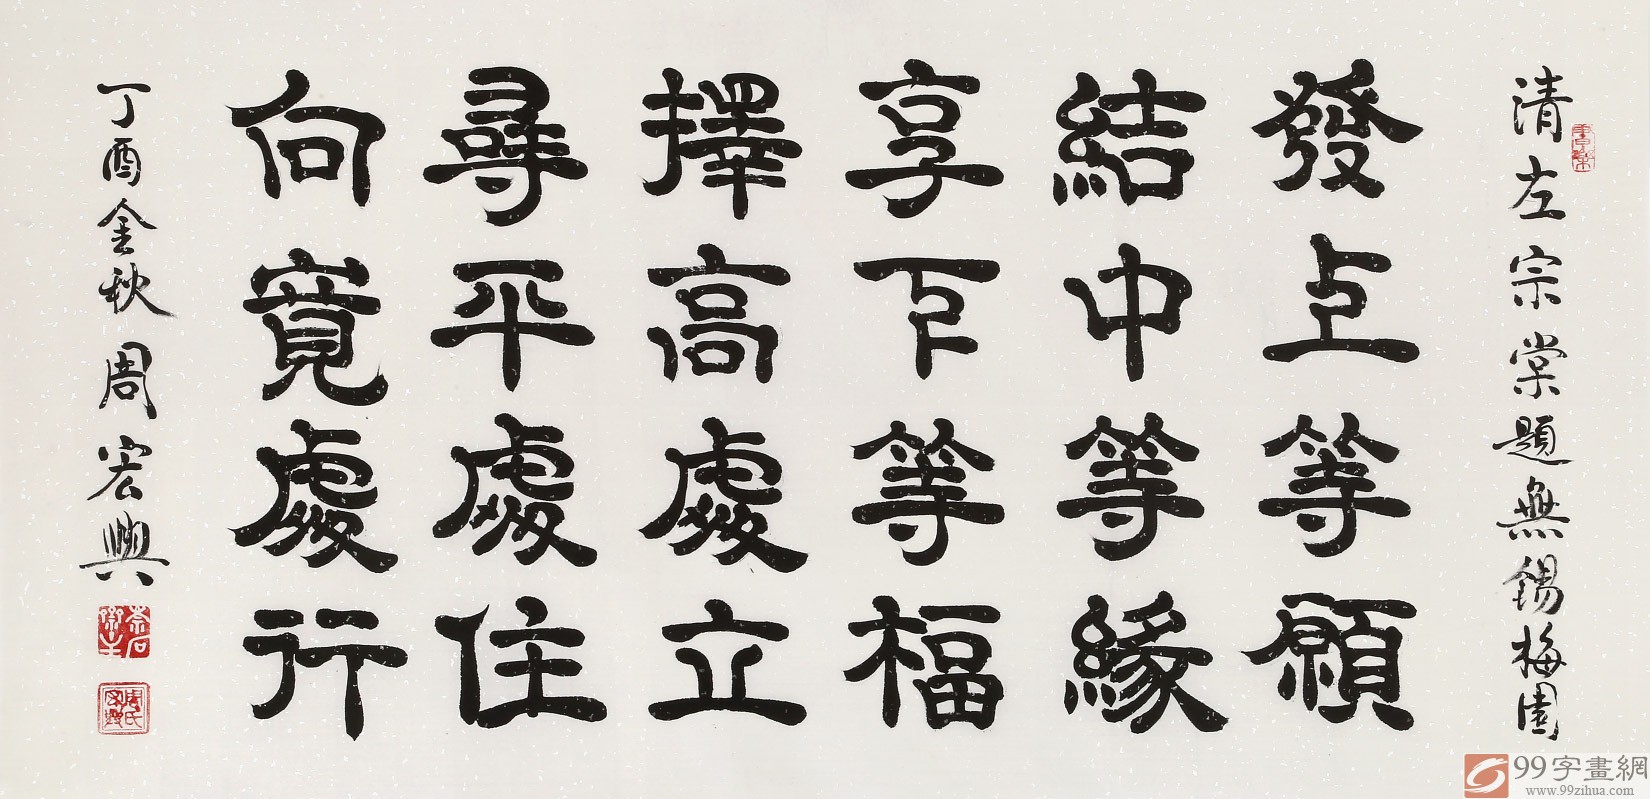 清左宗棠題無錫梅園
發上等願
結中等緣
享下等福
擇高處立
尋平處住
向寬處行
丁酉金秋周宏興
99字畫網
www.99zihua.com